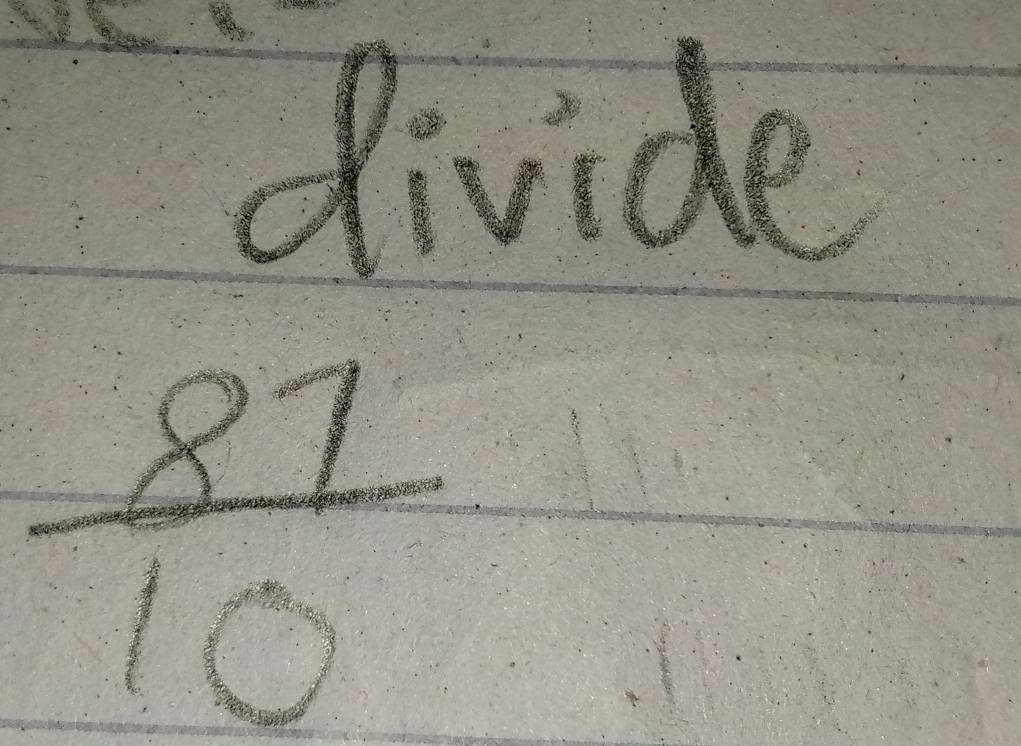 divide
87
10